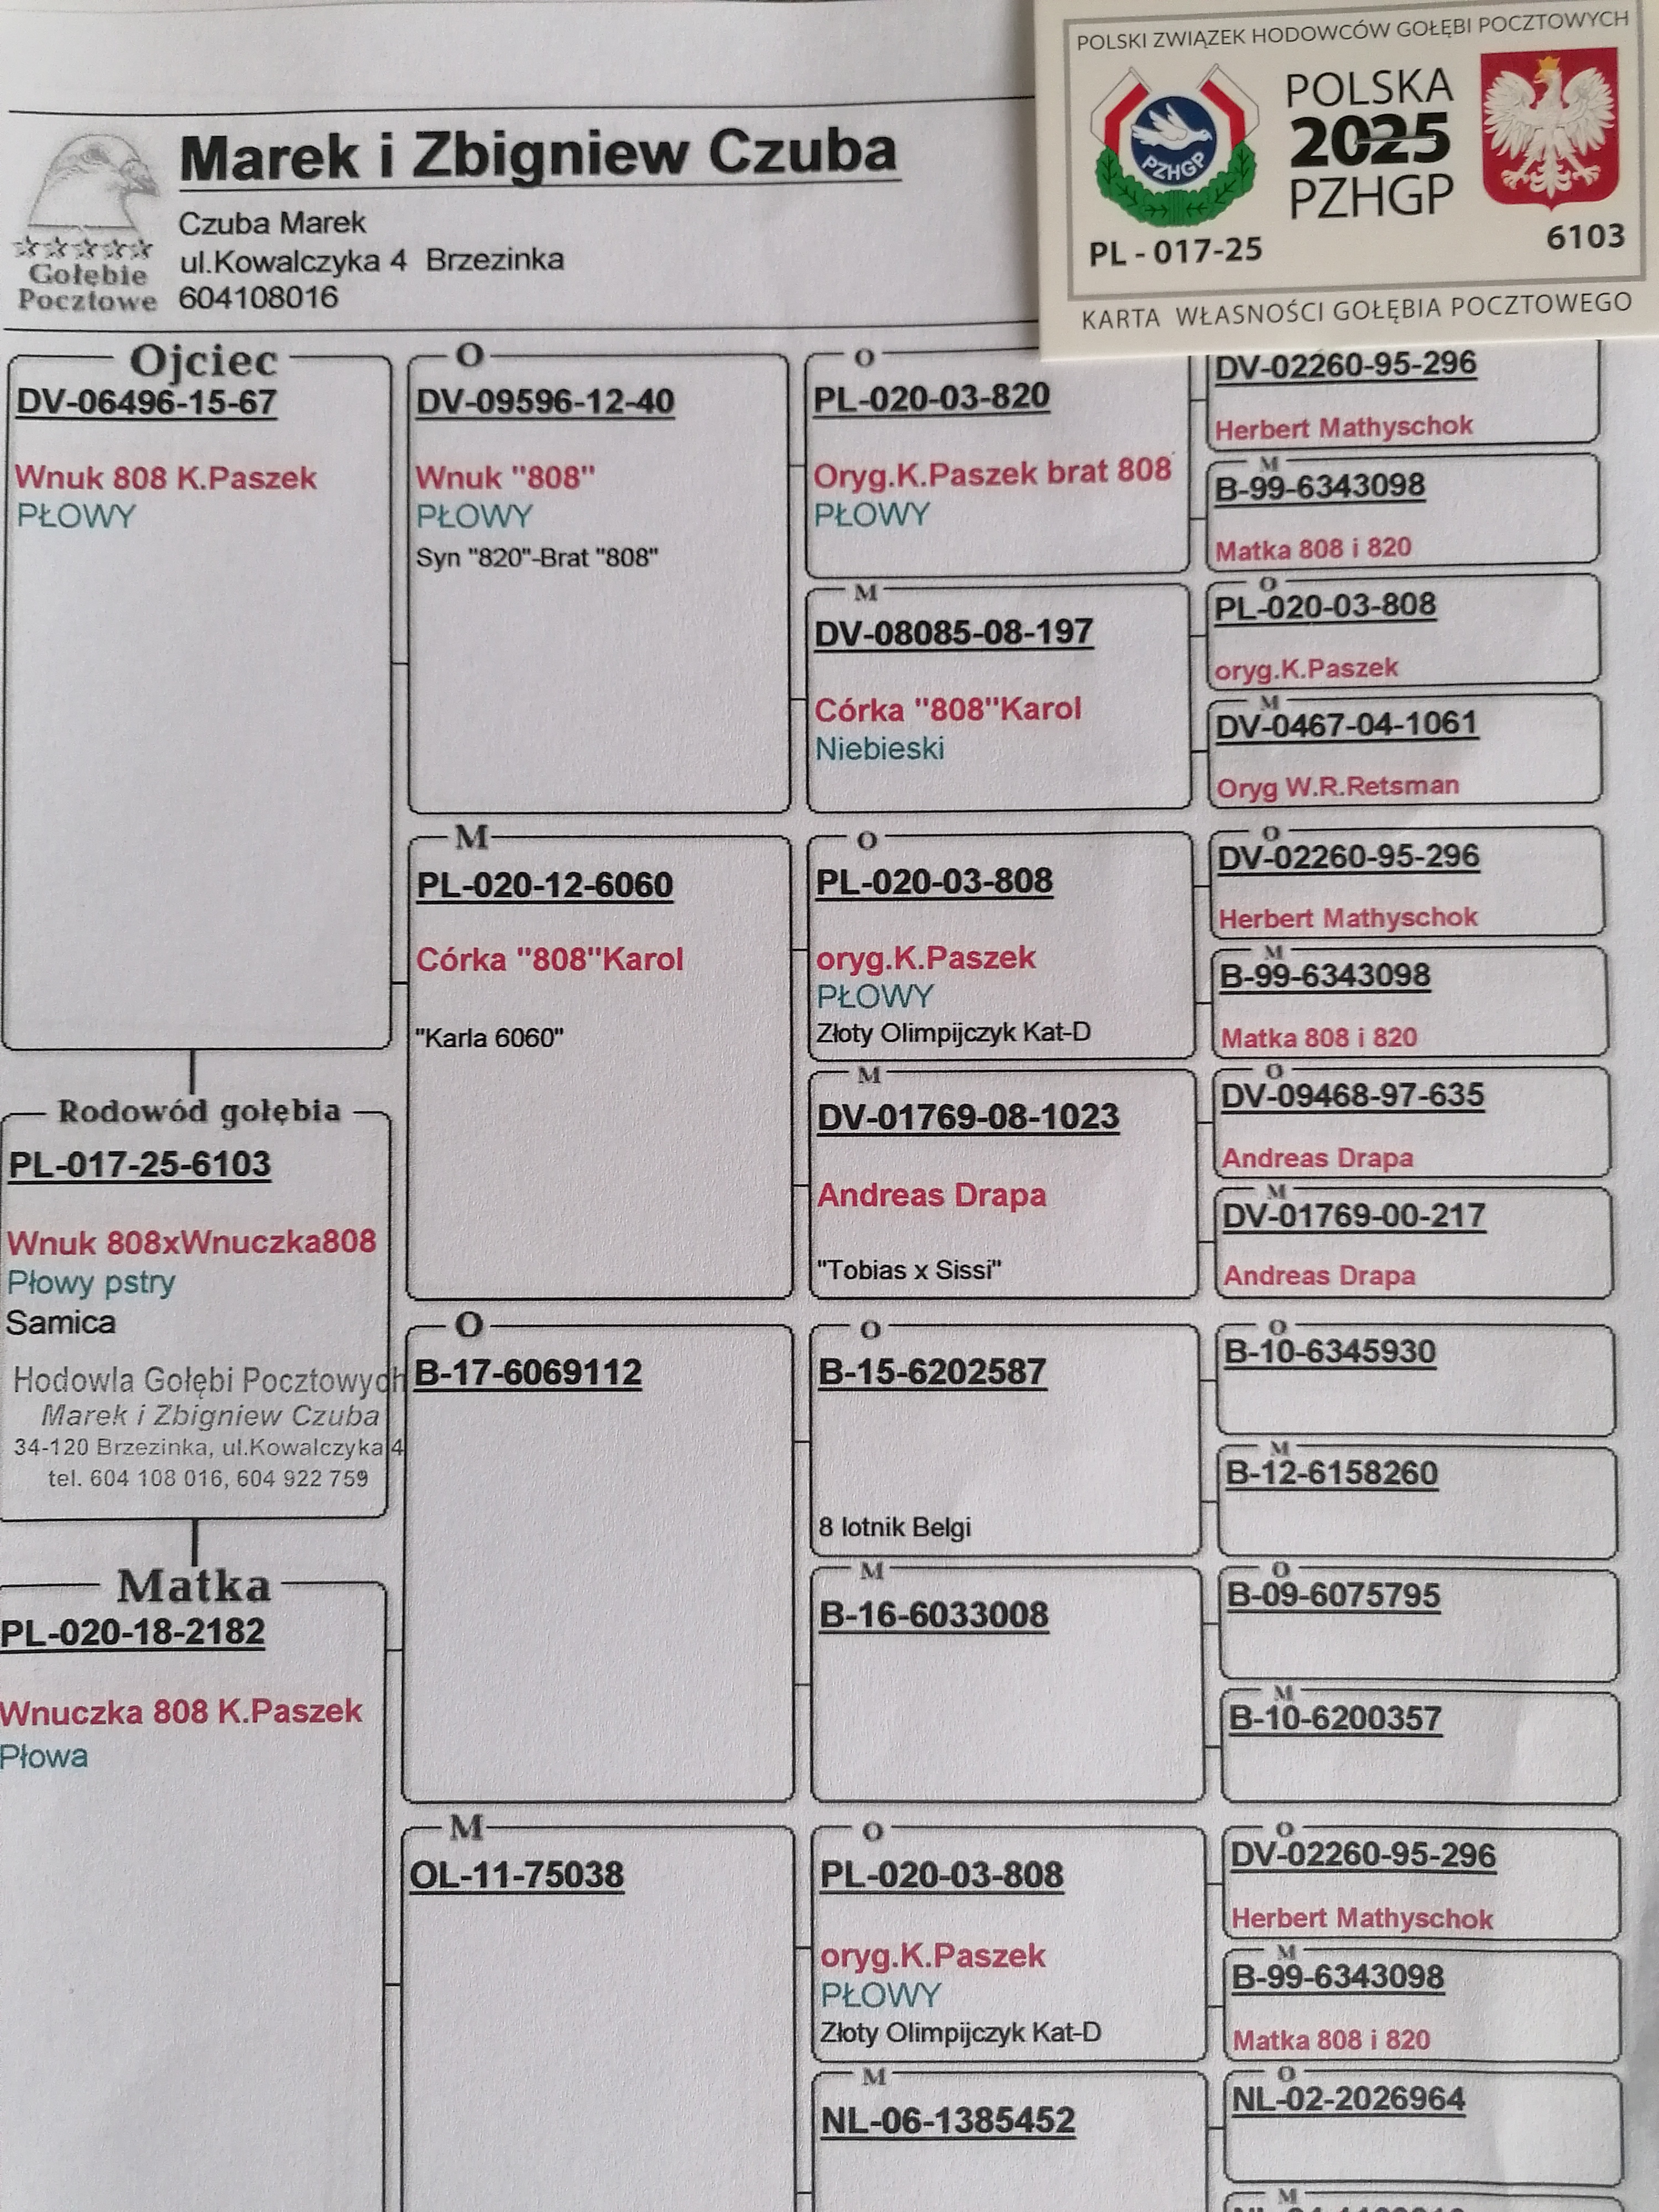 POLSKI ZWIĄZEK HODOWCÓW GOŁĘBI POCZTOWYCH
POLSKA
2025
PZHGP
PZHGP
PL - 017-25
6103
KARTA WŁASNOŚCI GOŁĘBIA POCZTOWEGO
Marek i Zbigniew Czuba
Czuba Marek
ul.Kowalczyka 4 Brzezinka
604108016
Gołębie
Pocztowe
Ojciec
DV-06496-15-67
Wnuk 808 K.Paszek
PŁOWY
Rodowód gołębia
PL-017-25-6103
Wnuk 808xWnuczka808
Płowy pstry
Samica
Hodowla Gołębi Pocztowych
Marek i Zbigniew Czuba
34-120 Brzezinka, ul.Kowalczyka 4
tel. 604 108 016, 604 922 759
Matka
PL-020-18-2182
Wnuczka 808 K.Paszek
Płowa
O
DV-09596-12-40
Wnuk "808"
PŁOWY
Syn "820"-Brat "808"
M
PL-020-12-6060
Córka "808"Karol
"Karla 6060"
O
B-17-6069112
M
OL-11-75038
O
PL-020-03-820
Oryg.K.Paszek brat 808
PŁOWY
M
DV-08085-08-197
Córka "808"Karol
Niebieski
O
PL-020-03-808
oryg.K.Paszek
PŁOWY
Złoty Olimpijczyk Kat-D
M
DV-01769-08-1023
Andreas Drapa
"Tobias x Sissi"
O
B-15-6202587
8 lotnik Belgi
M
B-16-6033008
O
PL-020-03-808
oryg.K.Paszek
PŁOWY
Złoty Olimpijczyk Kat-D
M
NL-06-1385452
DV-02260-95-296
Herbert Mathyschok
M
B-99-6343098
Matka 808 i 820
O
PL-020-03-808
oryg.K.Paszek
M
DV-0467-04-1061
Oryg W.R.Retsman
O
DV-02260-95-296
Herbert Mathyschok
M
B-99-6343098
Matka 808 i 820
O
DV-09468-97-635
Andreas Drapa
M
DV-01769-00-217
Andreas Drapa
O
B-10-6345930
M
B-12-6158260
O
B-09-6075795
M
B-10-6200357
O
DV-02260-95-296
Herbert Mathyschok
M
B-99-6343098
Matka 808 i 820
O
NL-02-2026964
M